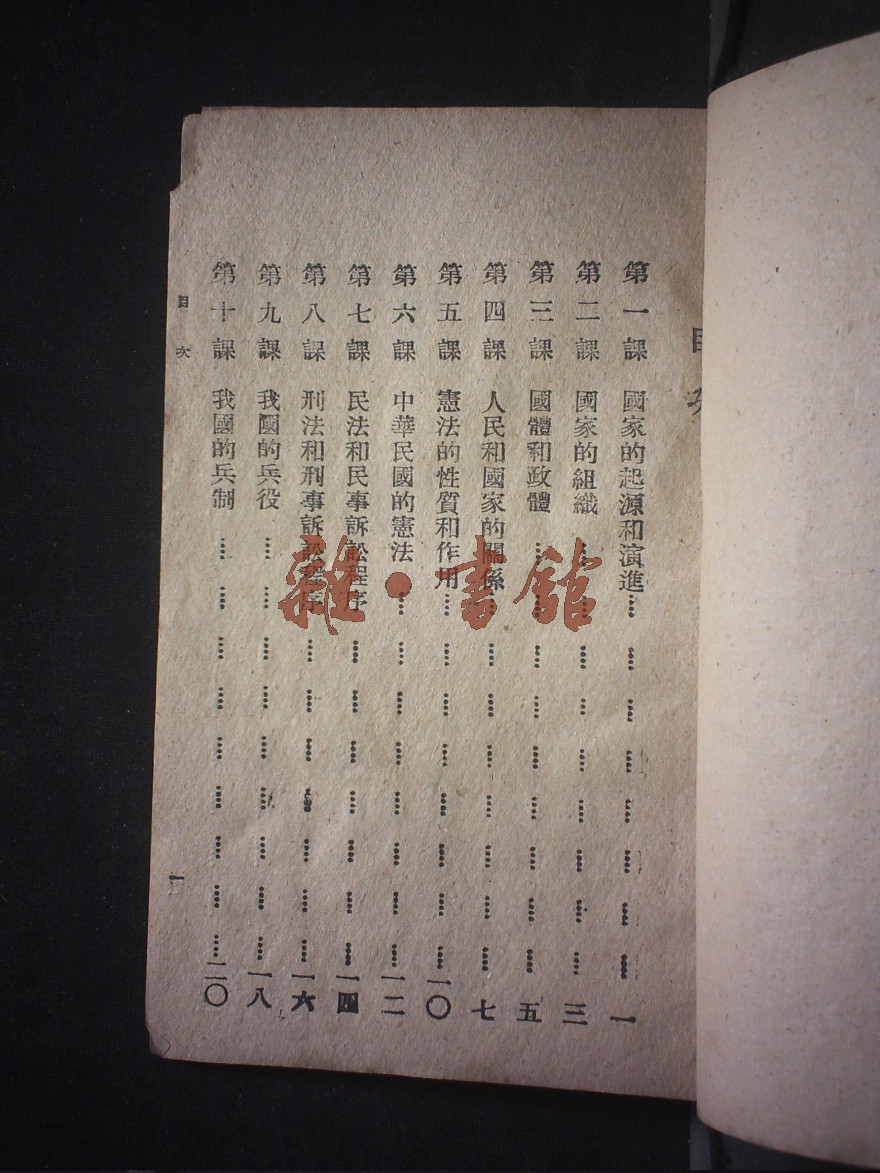 目次
第一課 國家的起源和演進 一
第二課 國家的組織 三
第三課 國體和政體 五
第四課 人民和國家的關係 七
第五課 憲法的性質和作用 一〇
第六課 中華民國的憲法 一二
第七課 民法和民事訴訟程序 一四
第八課 刑法和刑事訴訟程序 一六
第九課 我國的兵役 一八
第十課 我國的兵制 二〇
目次 一
雜·書館